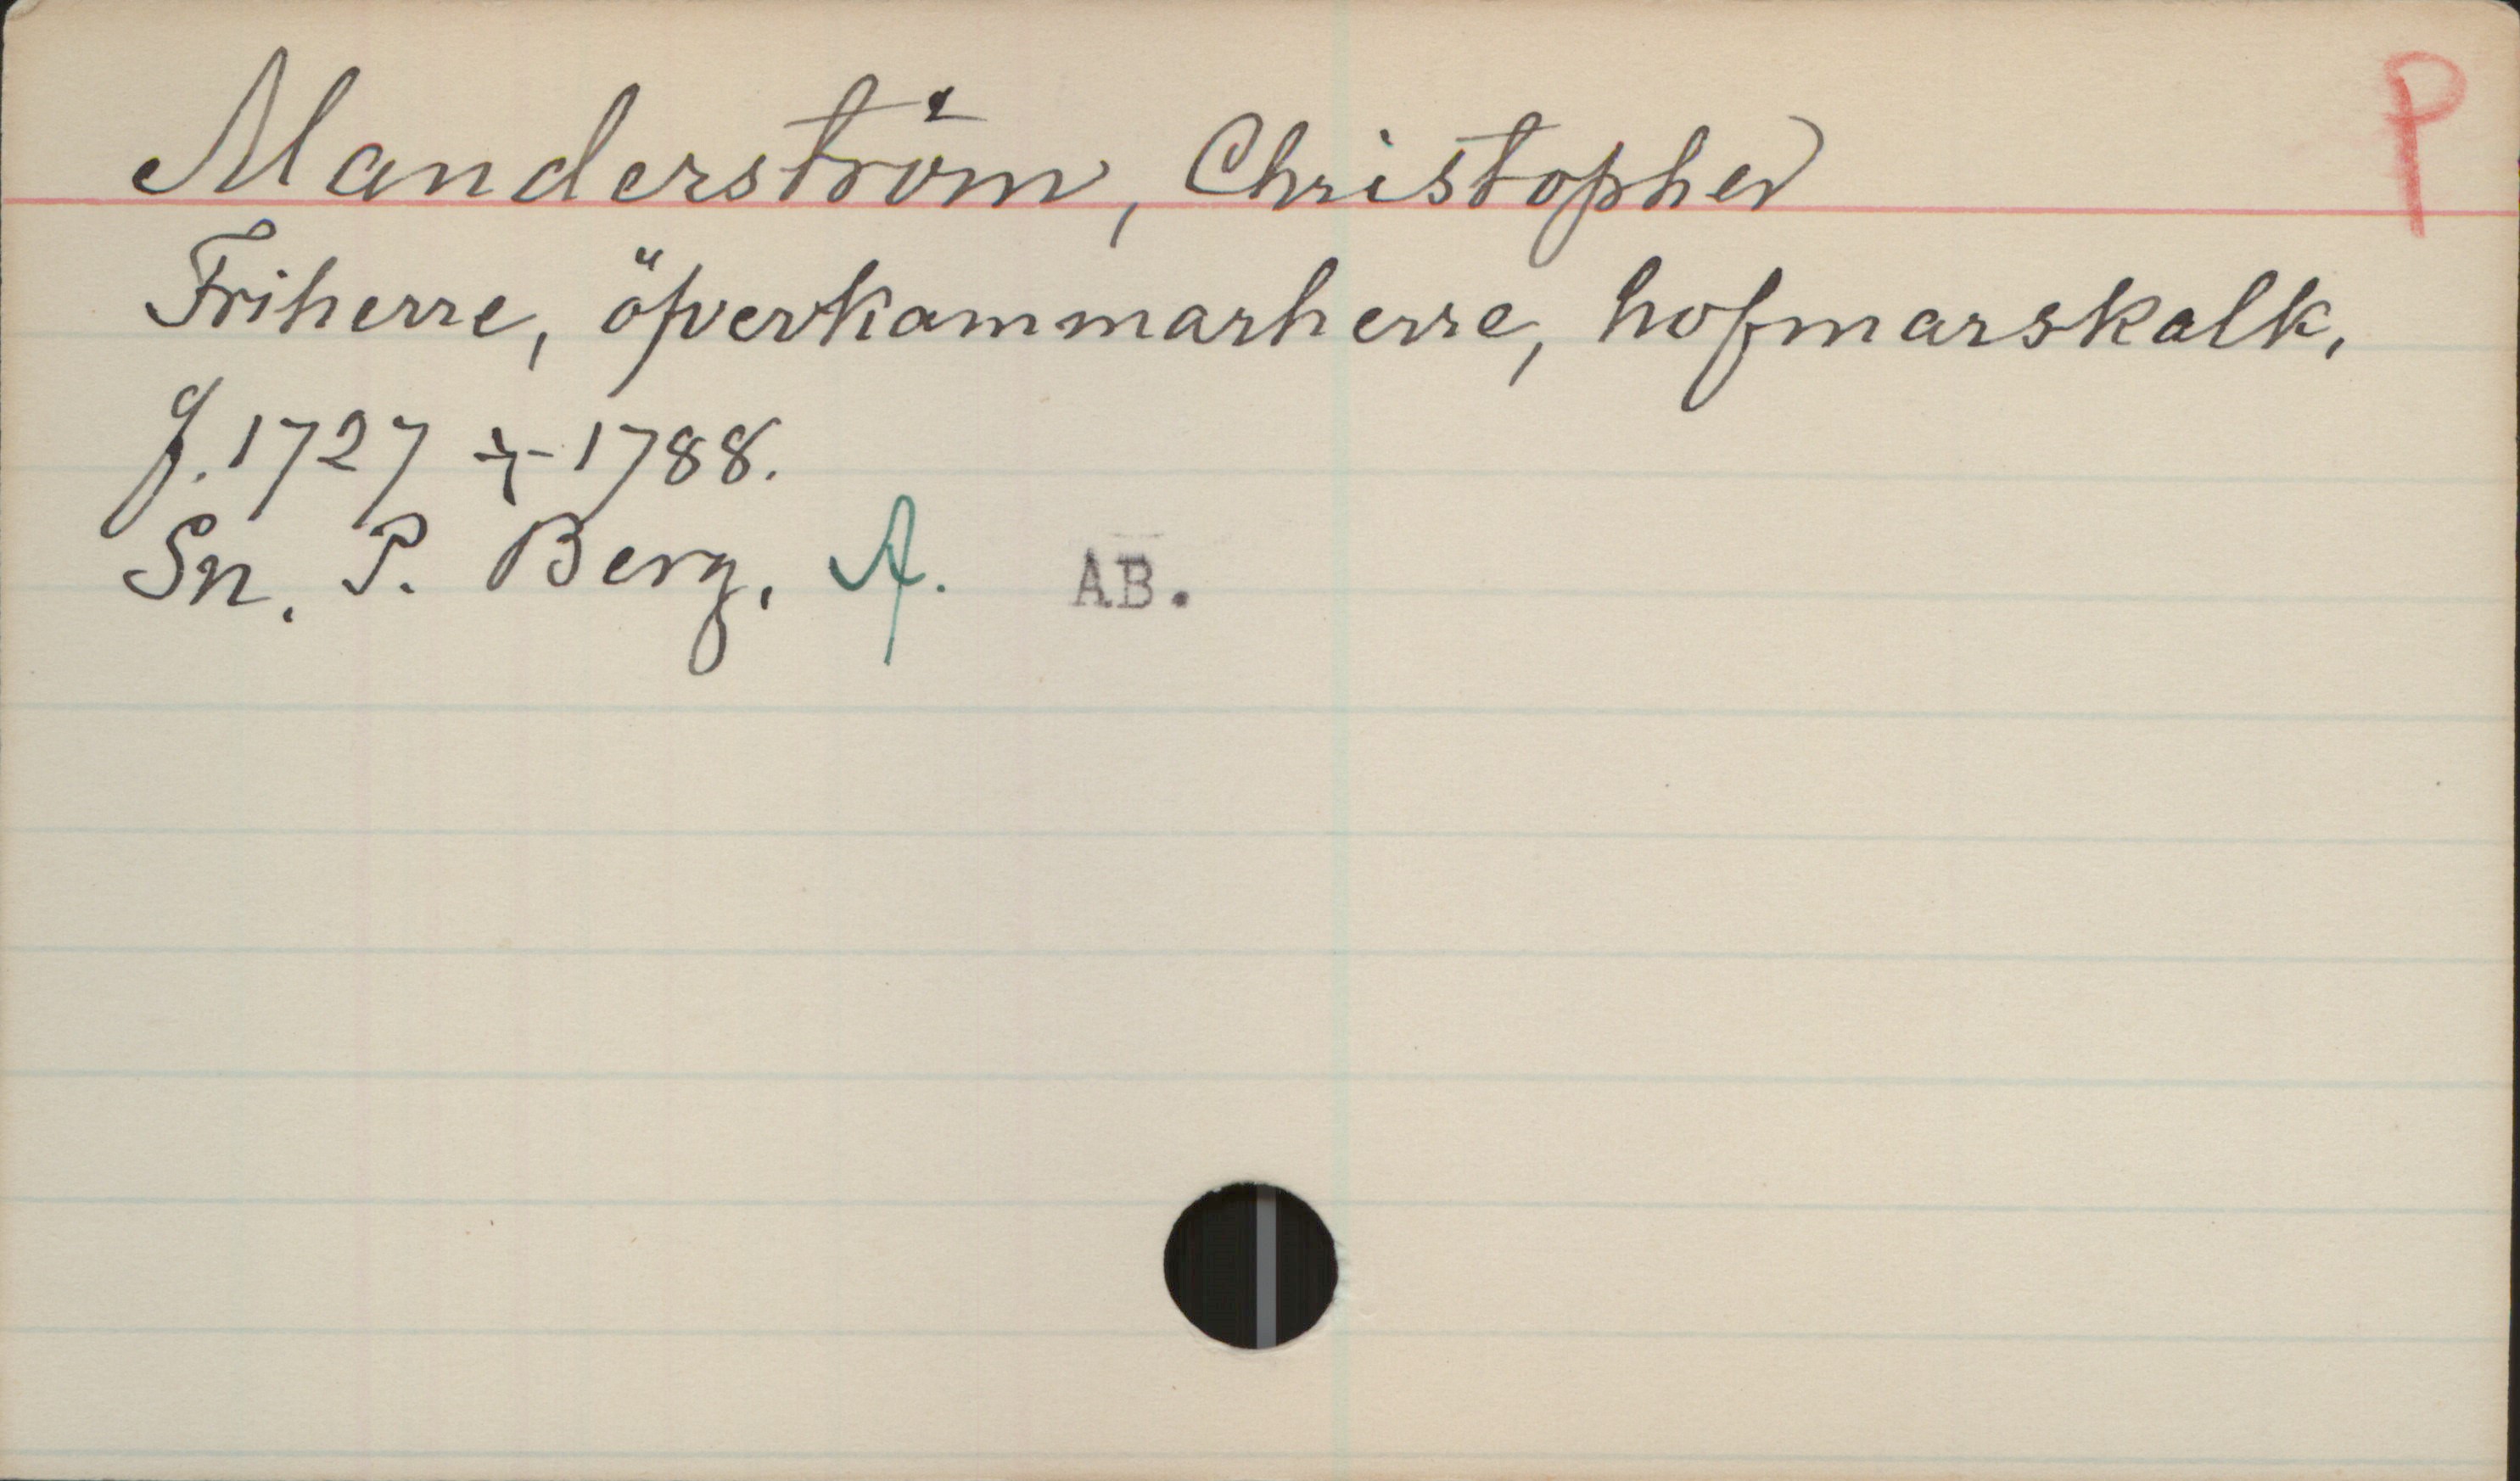 Manderström, Christopher P
Friherre, öfverkammarherre, hofmarskalk,
f. 1727 † 1788.
Sn. P. Berg, A. AB.